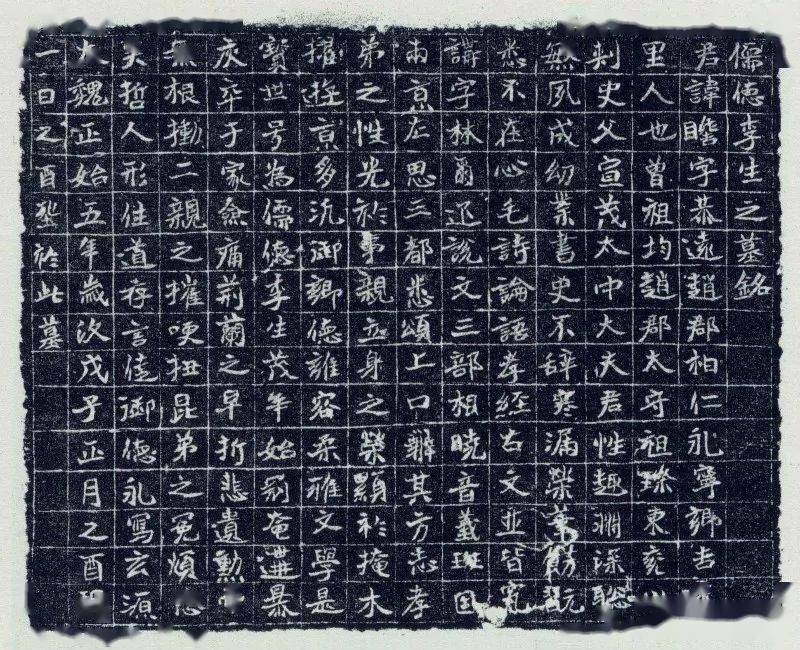 儒德李生之墓銘
君諱瞻字恭遠趙郡柏仁永寧鄉吉
里人也曾祖均趙郡太守祖璨東兗
刺史父宣茂太中大夫君性趣淵璪聡
無夙成幼業書史不辞寒漏槃翫
悉不在心毛詩論語孝經古文並皆究
講字林爾疋說文三部相曉音義班固
兩京左思三都悉頌上口辯其方志孝
弟之性光於事親立身之榮顯於掩木
擢遊京多氿御鄉德誰容柔雅文學是
寶世号為儒德李生茂年始冠奄遘暴
疾卒于家僉痛荊蘭之早折悲遺勳
無根慟二親之摧哽扭昆弟之冤煩
夫哲人形往道存言佳御德永寫玄源
大魏正始五年歲次戊子正月乙酉
一日乙酉塋於此墓